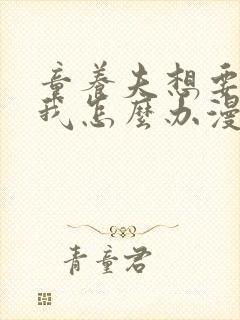 童养夫想要
我怎麼办漫
青童君